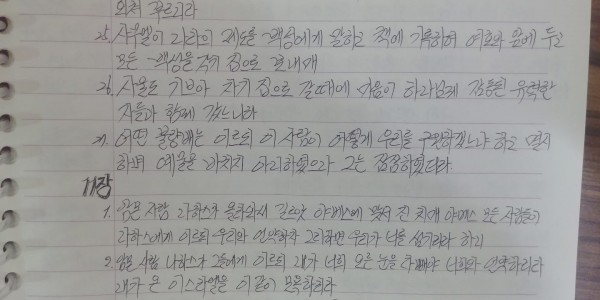 외쳐 부르리라
25. 사무엘이 나라의 제도를 백성에게 말하고 책에 기록하여 여호와 앞에 두고
모든 백성을 각기 집으로 보내매
26. 사울도 기브아 자기 집으로 갈 때에 마음이 하나님께 감동된 유력한
자들과 함께 갔느니라
27. 어떤 불량배는 이르되 이 사람이 어떻게 우리를 구원하겠느냐 하고 멸시
하며 예물을 바치지 아니하였으나 그는 잠잠하였더라
11장
1. 암몬 사람 나하스가 올라와서 길르앗 야베스에 맞서 진 치매 야베스 모든 사람들이
나하스에게 이르되 우리와 언약하자 그리하면 우리가 너를 섬기리라 하니
2. 암몬 사람 나하스가 그들에게 이르되 내가 너희 오른 눈을 다 빼야 너희와 언약하리라
내가 온 이스라엘을 이같이 모욕하리라